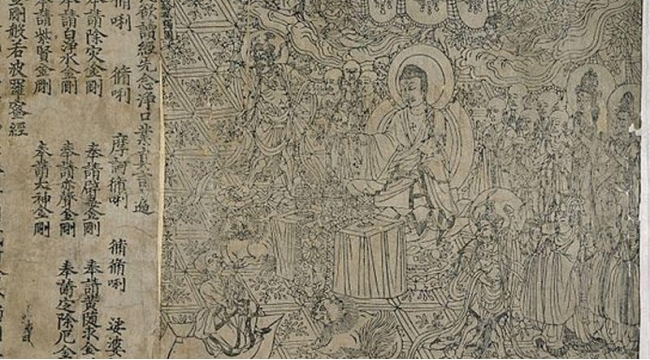 欲讀經先念淨口業真言一遍
脩唎 脩唎 摩訶脩唎 脩脩唎 娑婆
奉請除災金剛 奉請辟毒金剛 奉請黃隨求金
奉請白淨水金剛 奉請赤聲金剛 奉請定除厄金
奉請紫賢金剛 奉請大神金剛
金剛般若波羅蜜經